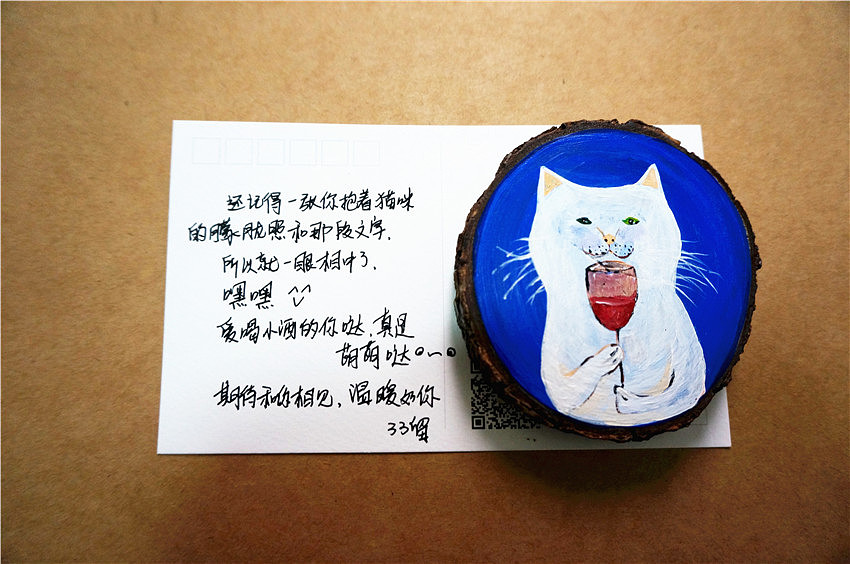 还记得一张你抱着猫咪
的朦胧照和那段文字.
所以就一眼相中了.
嘿嘿 ^^
爱喝小酒的你哒.真是
萌萌哒o~o
期待和你相见,温暖如你
33留